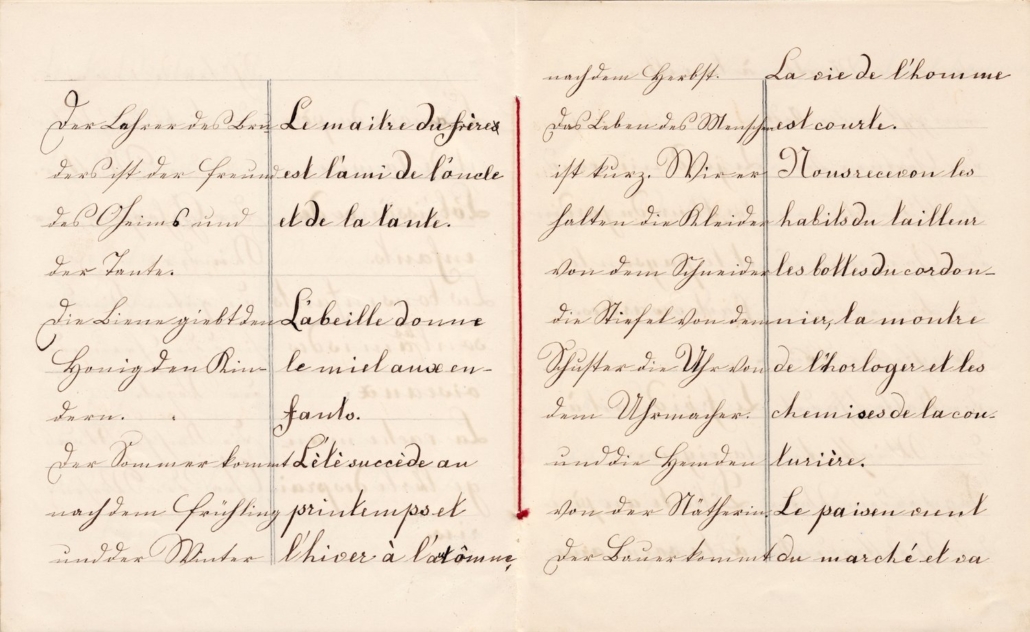 Der Lehrer des Bru
ders ist der Freund
des Oheims und
der Tante.
Die Biene giebt den
Honig den Kin-
dern.
Der Sommer kommt
nach dem Frühling
und der Winter
Le maitre du frères
est l'ami de l'oncle
et de la tante.
L'abeille donne
le miel aux en-
fants.
L'élè succède au
printemps et
l'hiver à l'atômne,
nach dem Herbst.
Das Leben des Menschen
ist kurz. Wir er
halten die Kleider
von dem Schneider
die Stiefel von dem
Schuster die Uhr von
dem Uhrmacher.
und die Hemden
von der Nätherin.
Der Bauer kommt
La vie de l'homme
est courte.
Nous recevon les
habits du tailleur
les bottes du cordon-
nier, la montre
de l'horloger et les
chemises de la cou-
turière.
Le paisen vient
du marché et va